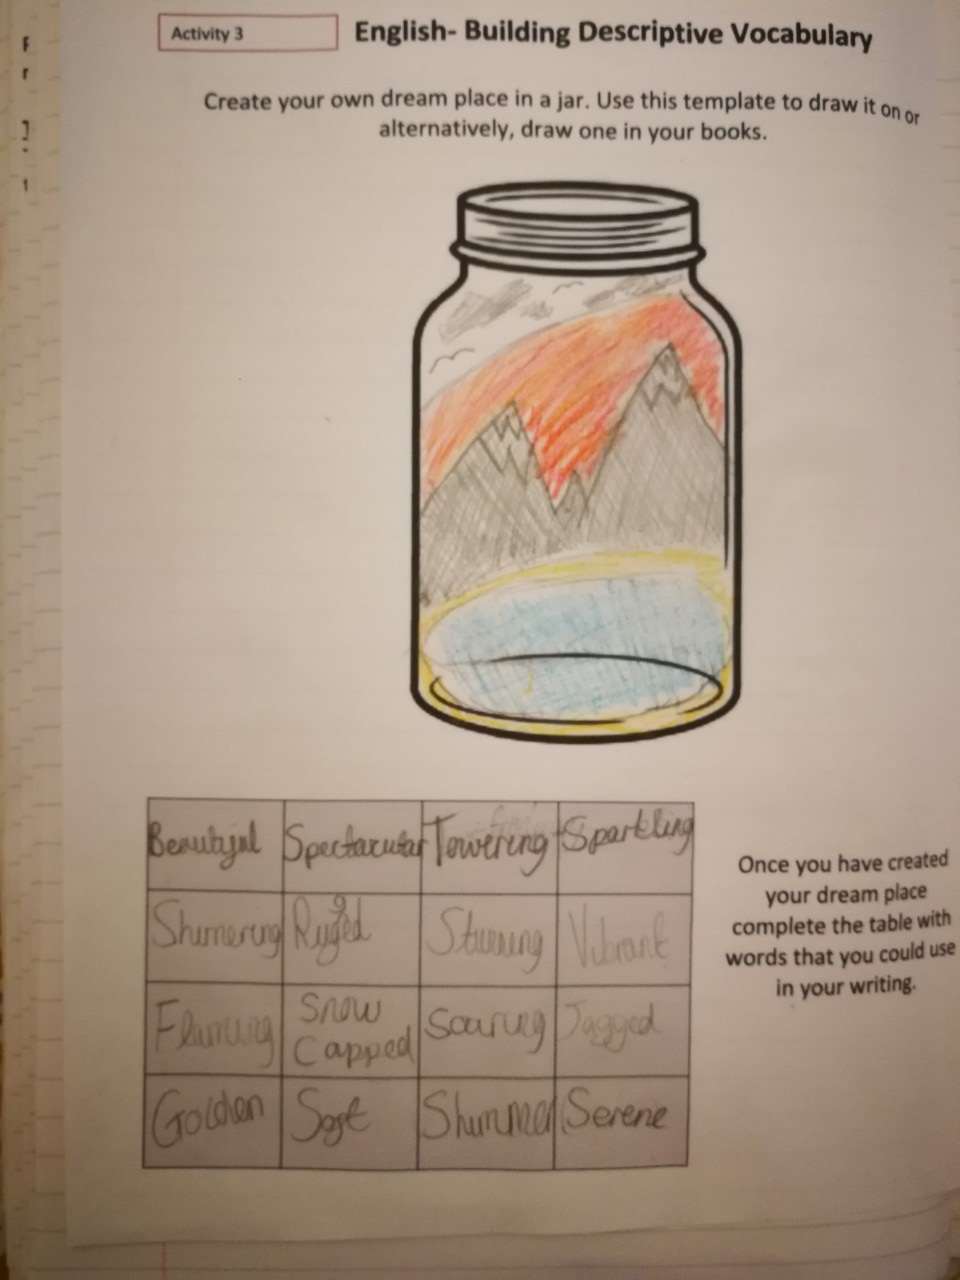 Activity 3
English- Building Descriptive Vocabulary
Create your own dream place in a jar. Use this template to draw it on or
alternatively, draw one in your books.
Beautiful Spectacular Towering Sparkling
Shimering Rugged Stunning Vibrant
Flaming Snow Capped Soaring Jagged
Golden Soft Shimmer Serene
Once you have created
your dream place
complete the table with
words that you could use
in your writing.